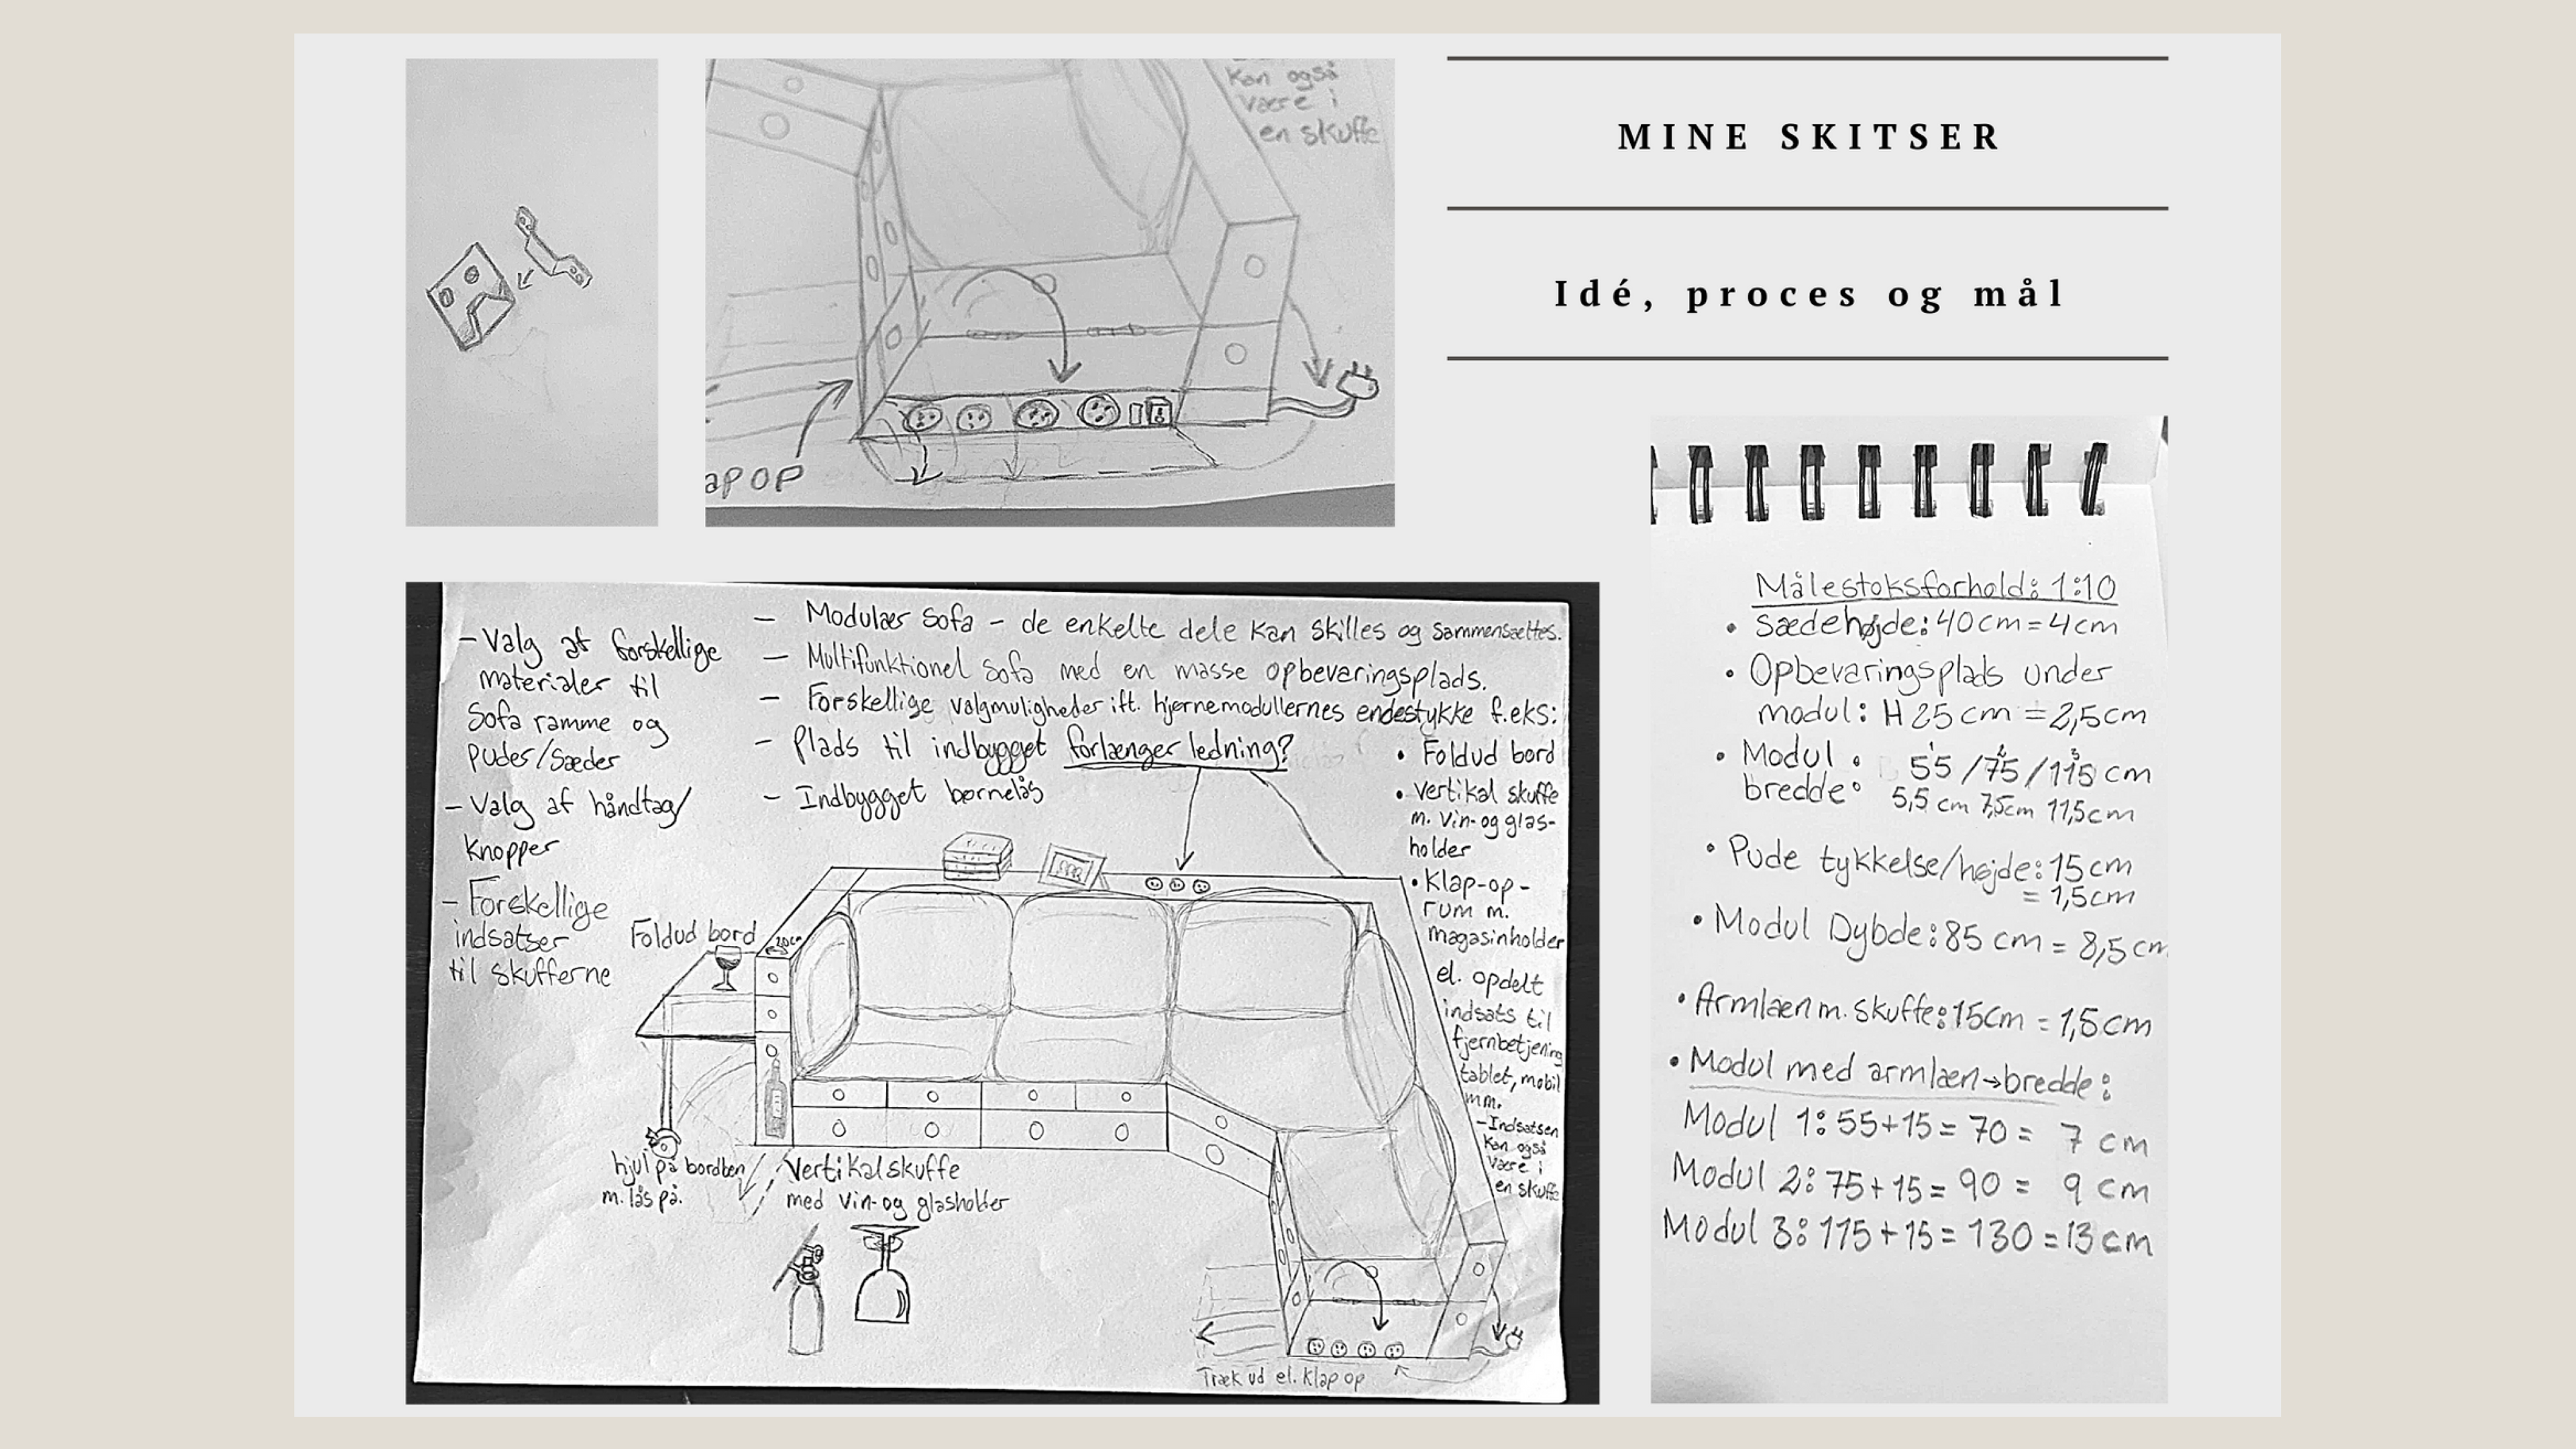 MINE SKITSER
Idé, proces og mål
Kan også
være i
en skuffe
ap op
- Valg af forskellige
materialer til
sofa ramme og
puder/sæder
- Valg af håndtag/
knopper
- Forskellige
indsatser
til skufferne
- Modulær sofa - de enkelte dele kan skilles og sammensættes.
- Multifunktionel sofa med en masse opbevaringsplads.
- Forskellige valgmuligheder ift. hjørnemodullernes endestykke f.eks:
- Plads til indbygget forlænger ledning?
- Indbygget børnelås
• Foldud bord
• Vertikal skuffe
m. vin- og glas-
holder
• Klap-op-
rum m.
magasinholder
el. opdelt
indsats til
fjernbetjening
tablet, mobil
mm.
- Indsatsen
kan også
være i
en skuffe
Foldud bord
20cm
hjul på bordben
m. lås på.
Vertikalskuffe
med vin- og glasholder
Træk ud el. klap op
Målestoksforhold: 1:10
• Sædehøjde: 40cm = 4cm
• Opbevaringsplads under
modul: H 25 cm = 2,5cm
• Modul :
bredde:
1 2 3
55 / 75 / 115 cm
5,5 cm 7,5cm 11,5cm
• Pude tykkelse/højde: 15cm
= 1,5cm
• Modul Dybde: 85 cm = 8,5 cm
• Armlæn m. skuffe: 15cm = 1,5cm
• Modul med armlæn→bredde:
Modul 1: 55+15 = 70 = 7 cm
Modul 2: 75+15 = 90 = 9 cm
Modul 3: 115+15 = 130 = 13 cm